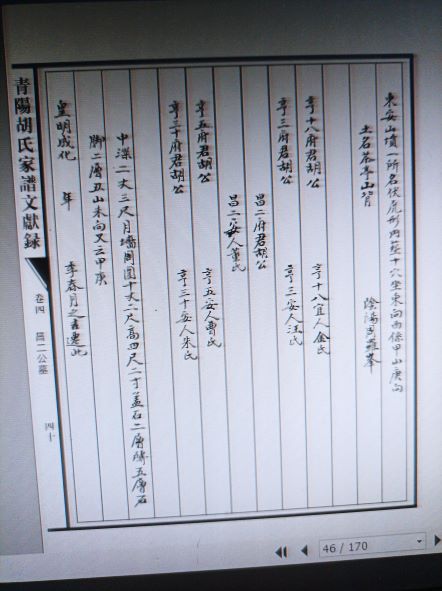 東安山墳一所名伏虎形内葬十穴坐東向西係甲山庚向
土名茶亭山背
陰陽周羅峯
亨十八府君胡公
亨十八宜人金氏
亨三府君胡公
亨三安人汪氏
昌二府君胡公
昌二安人董氏
亨五府君胡公
亨五安人曹氏
亨三十府君胡公
亨三十安人朱氏
中深二丈三尺月墻周圍十丈二尺高四尺二寸蓋石二層階五層石
脚二層丑山未向又云甲庚
皇明成化 年 季春月之吉遷此
青陽胡氏家譜文獻錄
卷四
昌二公墓
四十
46 / 170